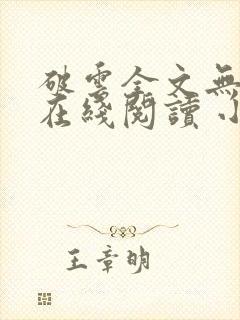 破雲全文無
在綫閱讀 小
王章明